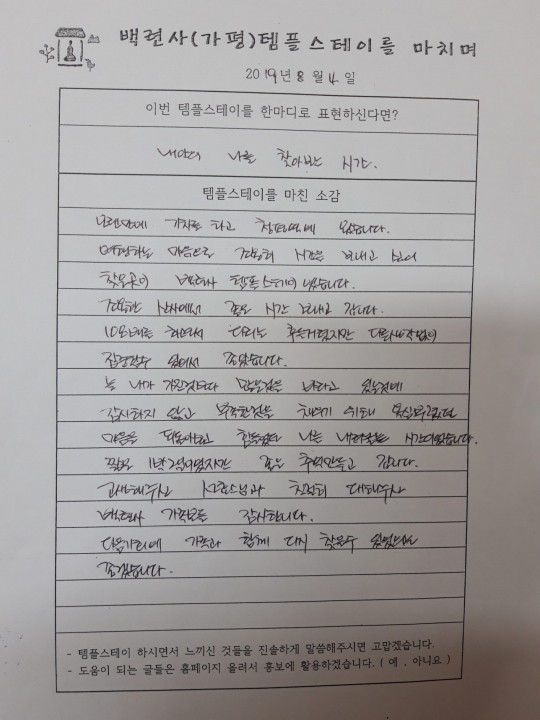 백련사(가평)템플스테이를 마치며
2019년 8월 4일
이번 템플스테이를 한마디로 표현하신다면?
내안의 나를 찾아보는 시간.
템플스테이를 마친 소감
오랜만에 기차를 타고 청평역에 왔습니다.
여행하는 마음으로 조용히 시간을 보내고 싶어
찾은곳이 백련사 템플스테이 였습니다.
조용한 산사에서 좋은 시간 보내고 갑니다.
108배를 하면서 다리는 후들거렸지만 다른생각없이
집중할수 있어서 좋았습니다.
늘 내가 가진것보다 많은것을 바라고 있는것에
감사하지 않고 부족한것을 채우기 위해
마음을 되돌아보고 힘들었던 나를 내려놓는 시간이었습니다.
짧은 1박2일이었지만 좋은 추억만들고 갑니다.
고생해주신 스님과 친절히 대해주신
백련사 가족모두 감사합니다.
다음기회에 가족과 함께 다시 찾을수 있었으면
좋겠습니다.
- 템플스테이 하시면서 느끼신 것들을 진솔하게 말씀해주시면 고맙겠습니다.
- 도움이 되는 글들은 홈페이지 올려서 홍보에 활용하겠습니다. ( 예 , 아니요 )